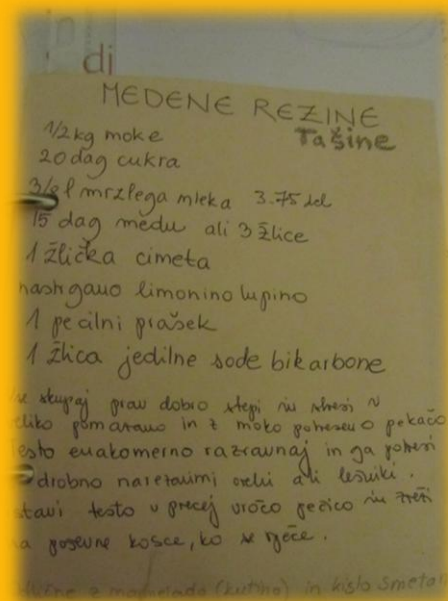 di
MEDENE REZINE
Tašine
1/2 kg moke
20 dag cukra
3/8 l mrzlega mleka 3.75 del
15 dag medu ali 3 žlice
1 žlička cimeta
nastrgano limonino lupino
1 pecilni prašek
1 žlica jedilne sode bikarbone
skupaj prav dobro stepi in stresi v
veliko pomazano in z moko potreseno pekačo
Testo enakomerno razravnaj in ga potresi
drobno narezanimi orehi ali lešniki.
testo v precej vročo pečico in zreži
na poševne kosce, ko se speče.
z marmelado (kutino) in kislo smetano